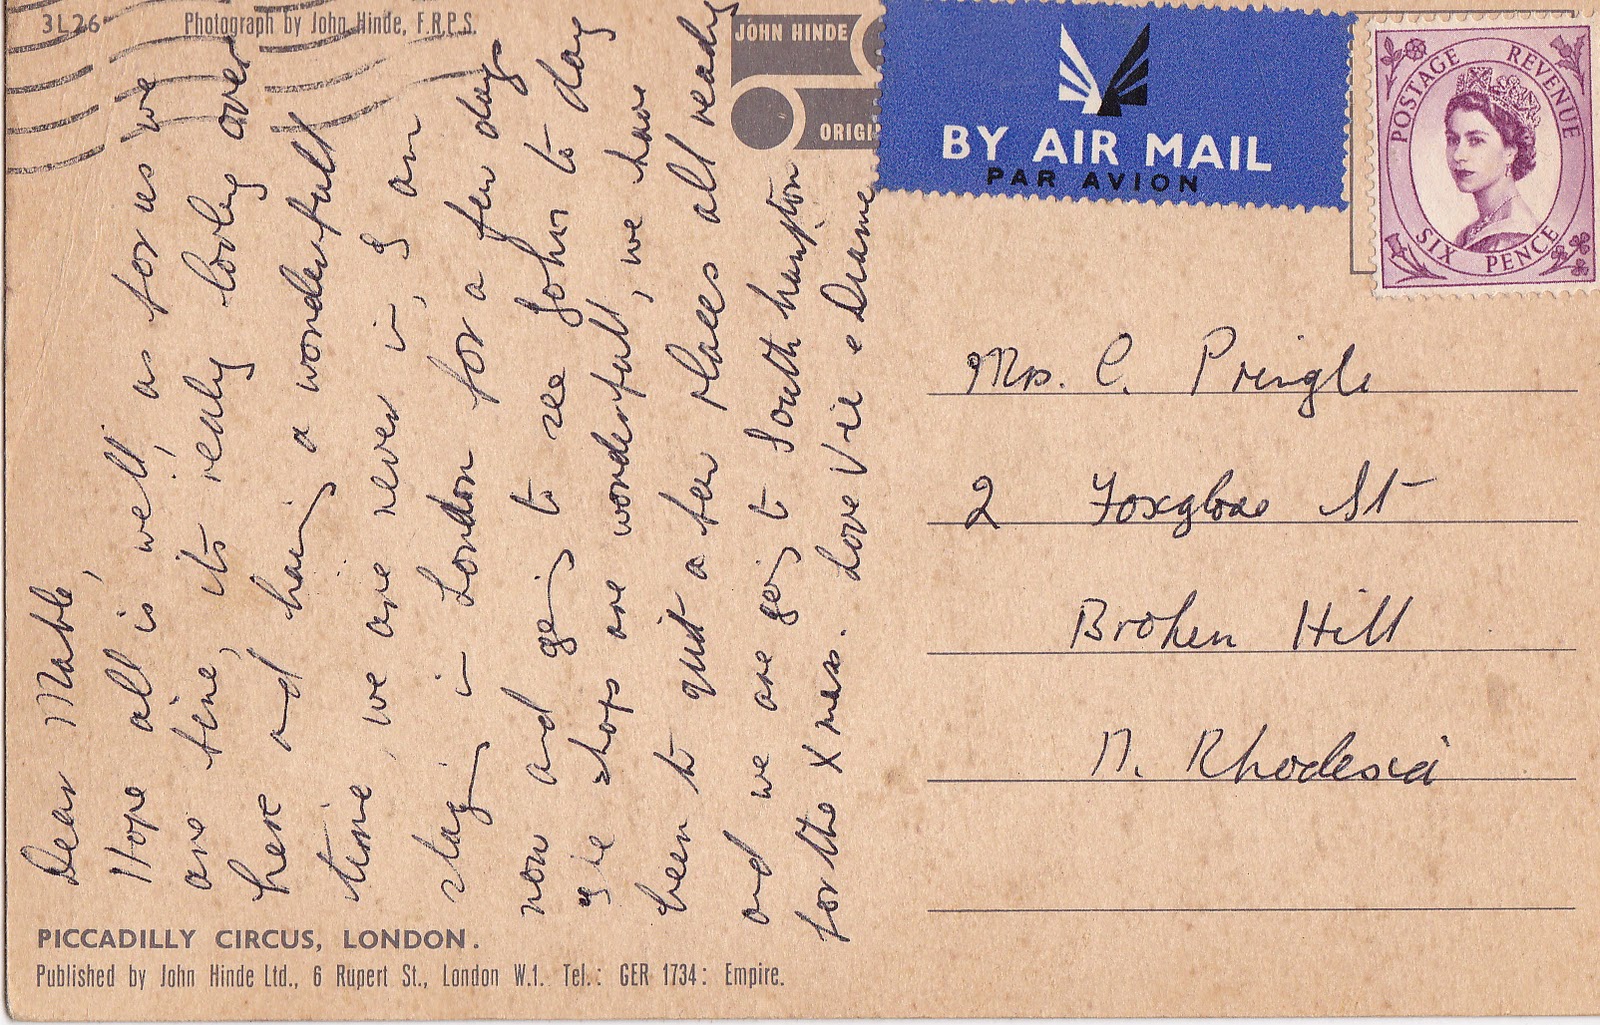 3L26
Photograph by John Hinde, F.R.P.S.
JOHN HINDE
ORIGI
BY AIR MAIL
PAR AVION
POSTAGE REVENUE
SIX PENCE
Dear Mable,
Hope all is well, as for us we
are fine, its realy lovley over
here and having a wonderfull
time, we are never in, I am
staying in London for a few days
now and going to see John to day
The shops are wonderfull, we have
been to quit a few places all ready
and we are going to South hampton
for the Xmas. Love Vie e Dianne
Mrs. C. Pringle
2 Foxglove St
Broken Hill
N. Rhodesia
PICCADILLY CIRCUS, LONDON.
Published by John Hinde Ltd., 6 Rupert St., London W.1. Tel.: GER 1734: Empire.